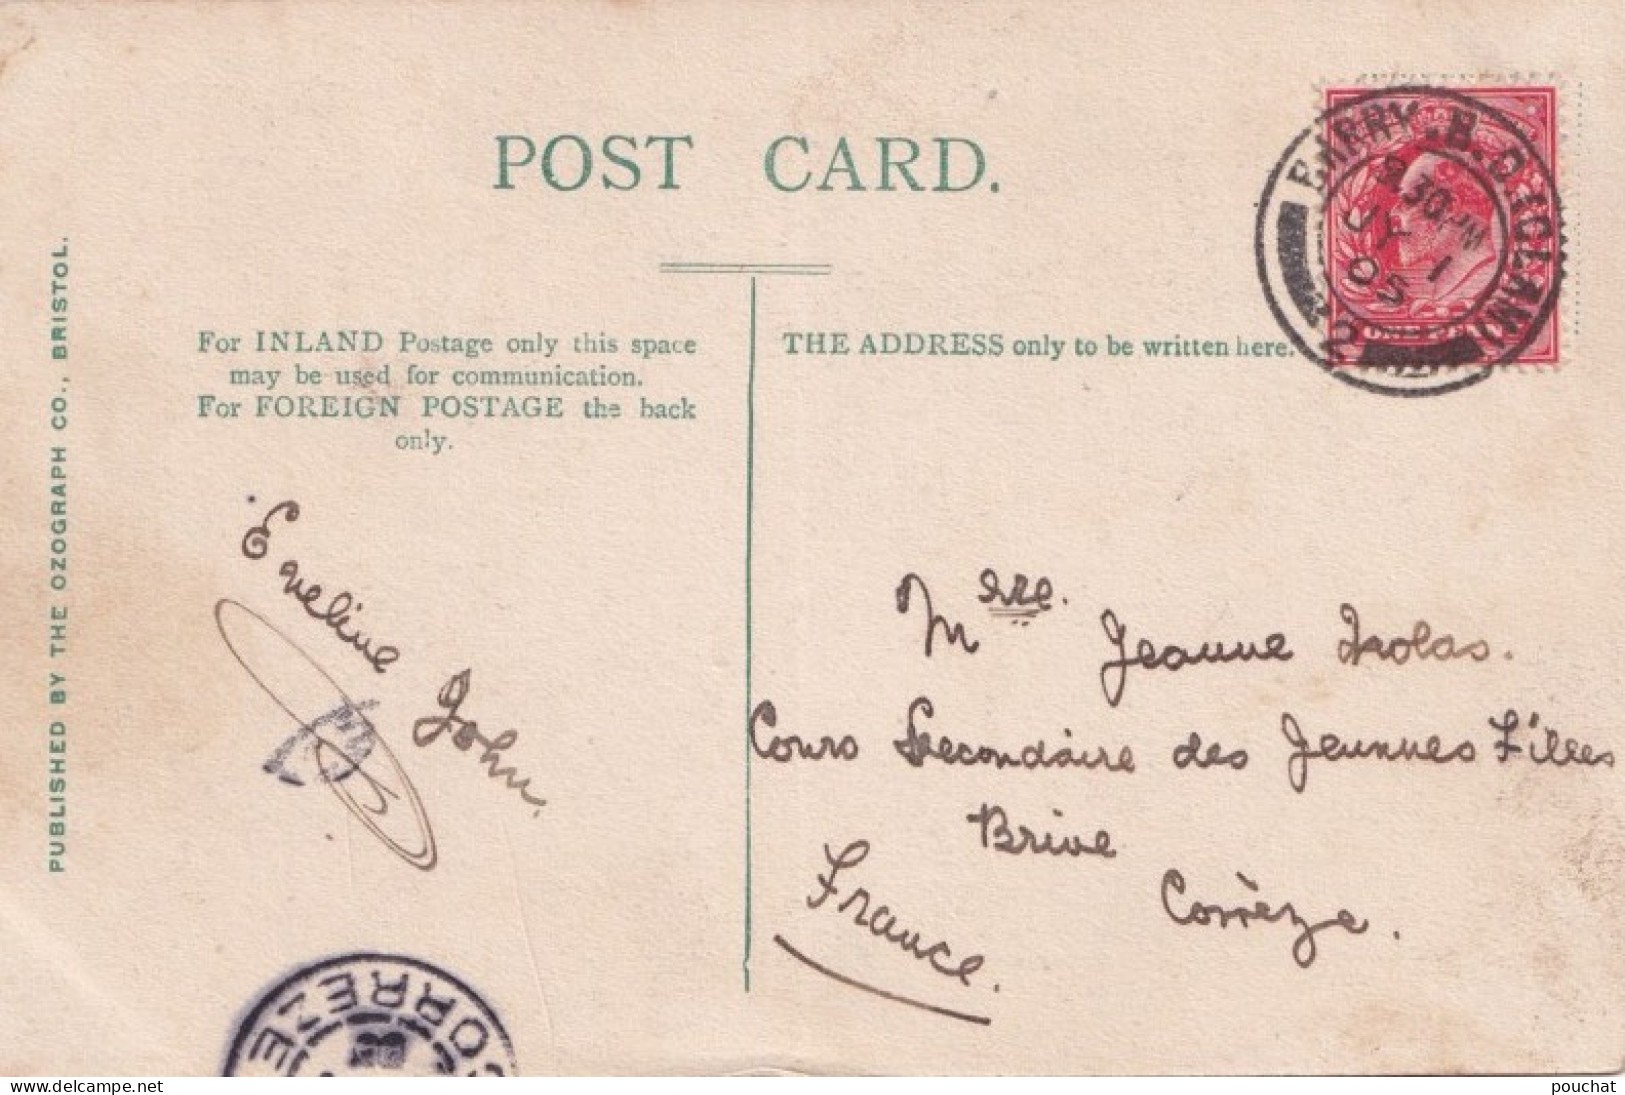 POST CARD.
PUBLISHED BY THE OZOGRAPH CO., BRISTOL.
For INLAND Postage only this space
may be used for communication.
For FOREIGN POSTAGE the back
only.
THE ADDRESS only to be written here.
BARRY
30 PM
JY 1
05
2
Eveline John.
Mlle. Jeanne
Cours Secondaire des Jeunnes Filles
Brive
Corrèze.
France.
CORREZE
www.delcampe.net
pouchat